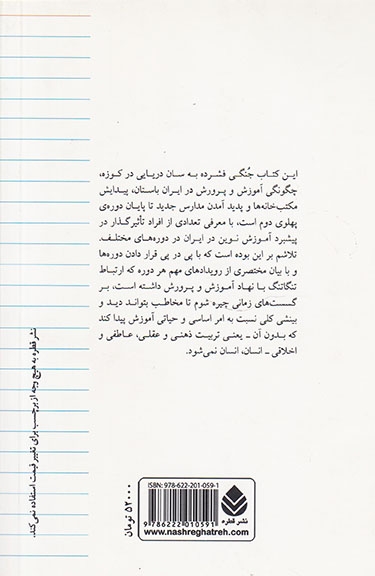 این کتاب جُنگی فشرده به سان دریایی در کوزه،
چگونگی آموزش و پرورش در ایران باستان، پیدایش
مکتب‌خانه‌ها و پدید آمدن مدارس جدید تا پایان دوره‌ی
پهلوی دوم است، با معرفی تعدادی از افراد تأثیرگذار در
پیشبرد آموزش نوین در ایران در دوره‌های مختلف.
تلاشم بر این بوده است که با پی در پی قرار دادن دوره‌ها
و با بیان مختصری از رویدادهای مهم هر دوره که ارتباط
تنگاتنگ با نهاد آموزش و پرورش داشته است، بر
گسست‌های زمانی چیره شوم تا مخاطب بتواند دید و
بینشی کلی نسبت به امر اساسی و حیاتی آموزش پیدا کند
که بدون آن - یعنی تربیت ذهنی و عقلی، عاطفی و
اخلاقی - انسان، انسان نمی‌شود.
نشر قطره به هیچ وجه از برچسب برای تغییر قیمت استفاده نمی‌کند.
۵۲۰۰۰ تومان
ISBN: 978-622-201-059-1
9 786222 010591
نشر قطره
www.nashreghatreh.com